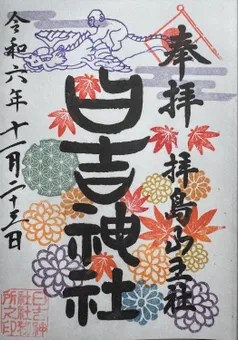 奉拝 拝島山王社
日吉神社
令和六年十一月二十三日
日吉神
社社務
所之印